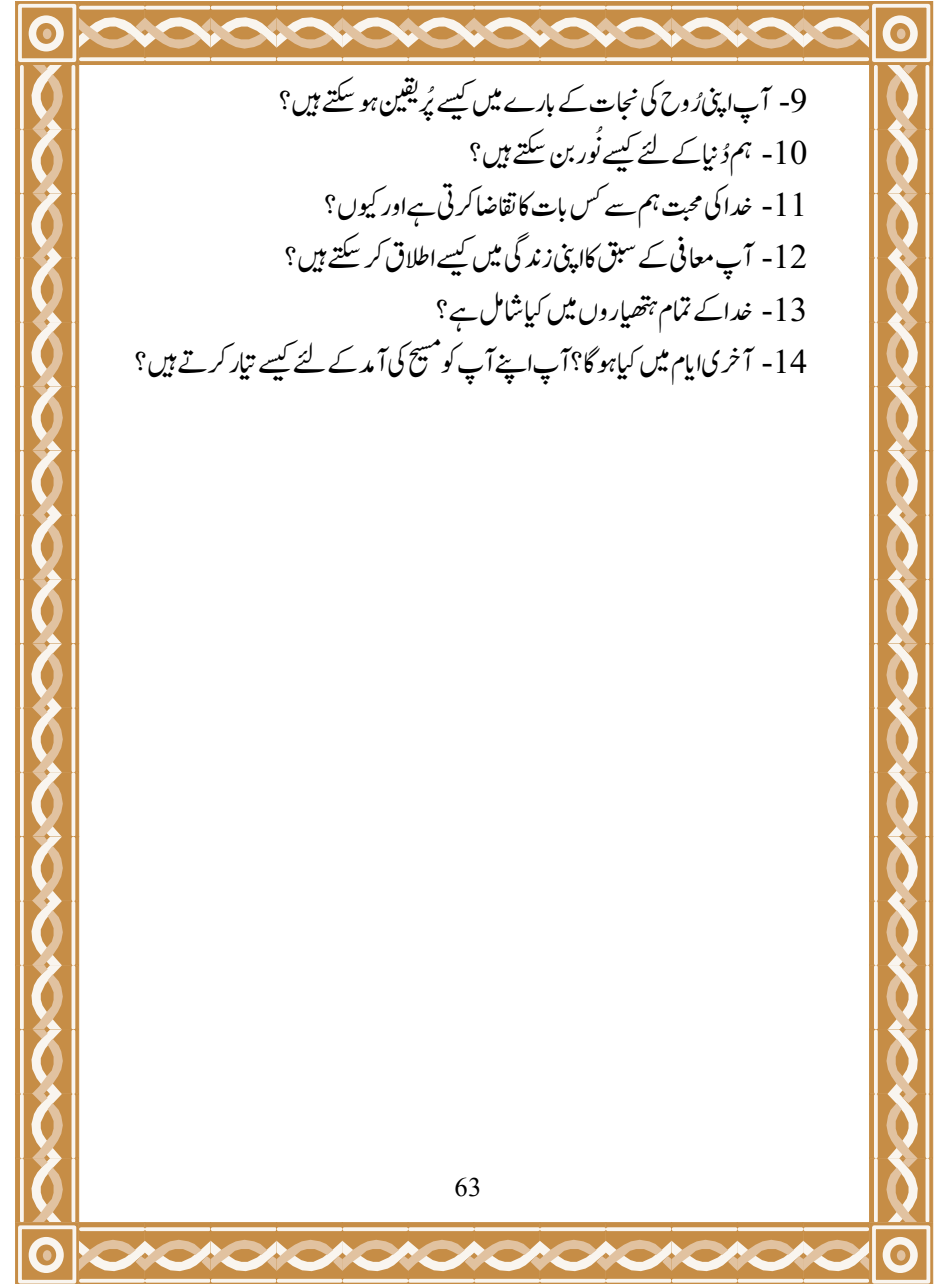 9- آپ اپنی رُوح کی نجات کے بارے میں کیسے پُر یقین ہو سکتے ہیں؟
10- ہم دُنیا کے لئے کیسے نُور بن سکتے ہیں؟
11- خدا کی محبت ہم سے کس بات کا تقاضا کرتی ہے اور کیوں؟
12- آپ معافی کے سبق کا اپنی زندگی میں کیسے اطلاق کر سکتے ہیں؟
13- خدا کے تمام ہتھیاروں میں کیا شامل ہے؟
14- آخری ایام میں کیا ہو گا؟ آپ اپنے آپ کو مسیح کی آمد کے لئے کیسے تیار کرتے ہیں؟
63